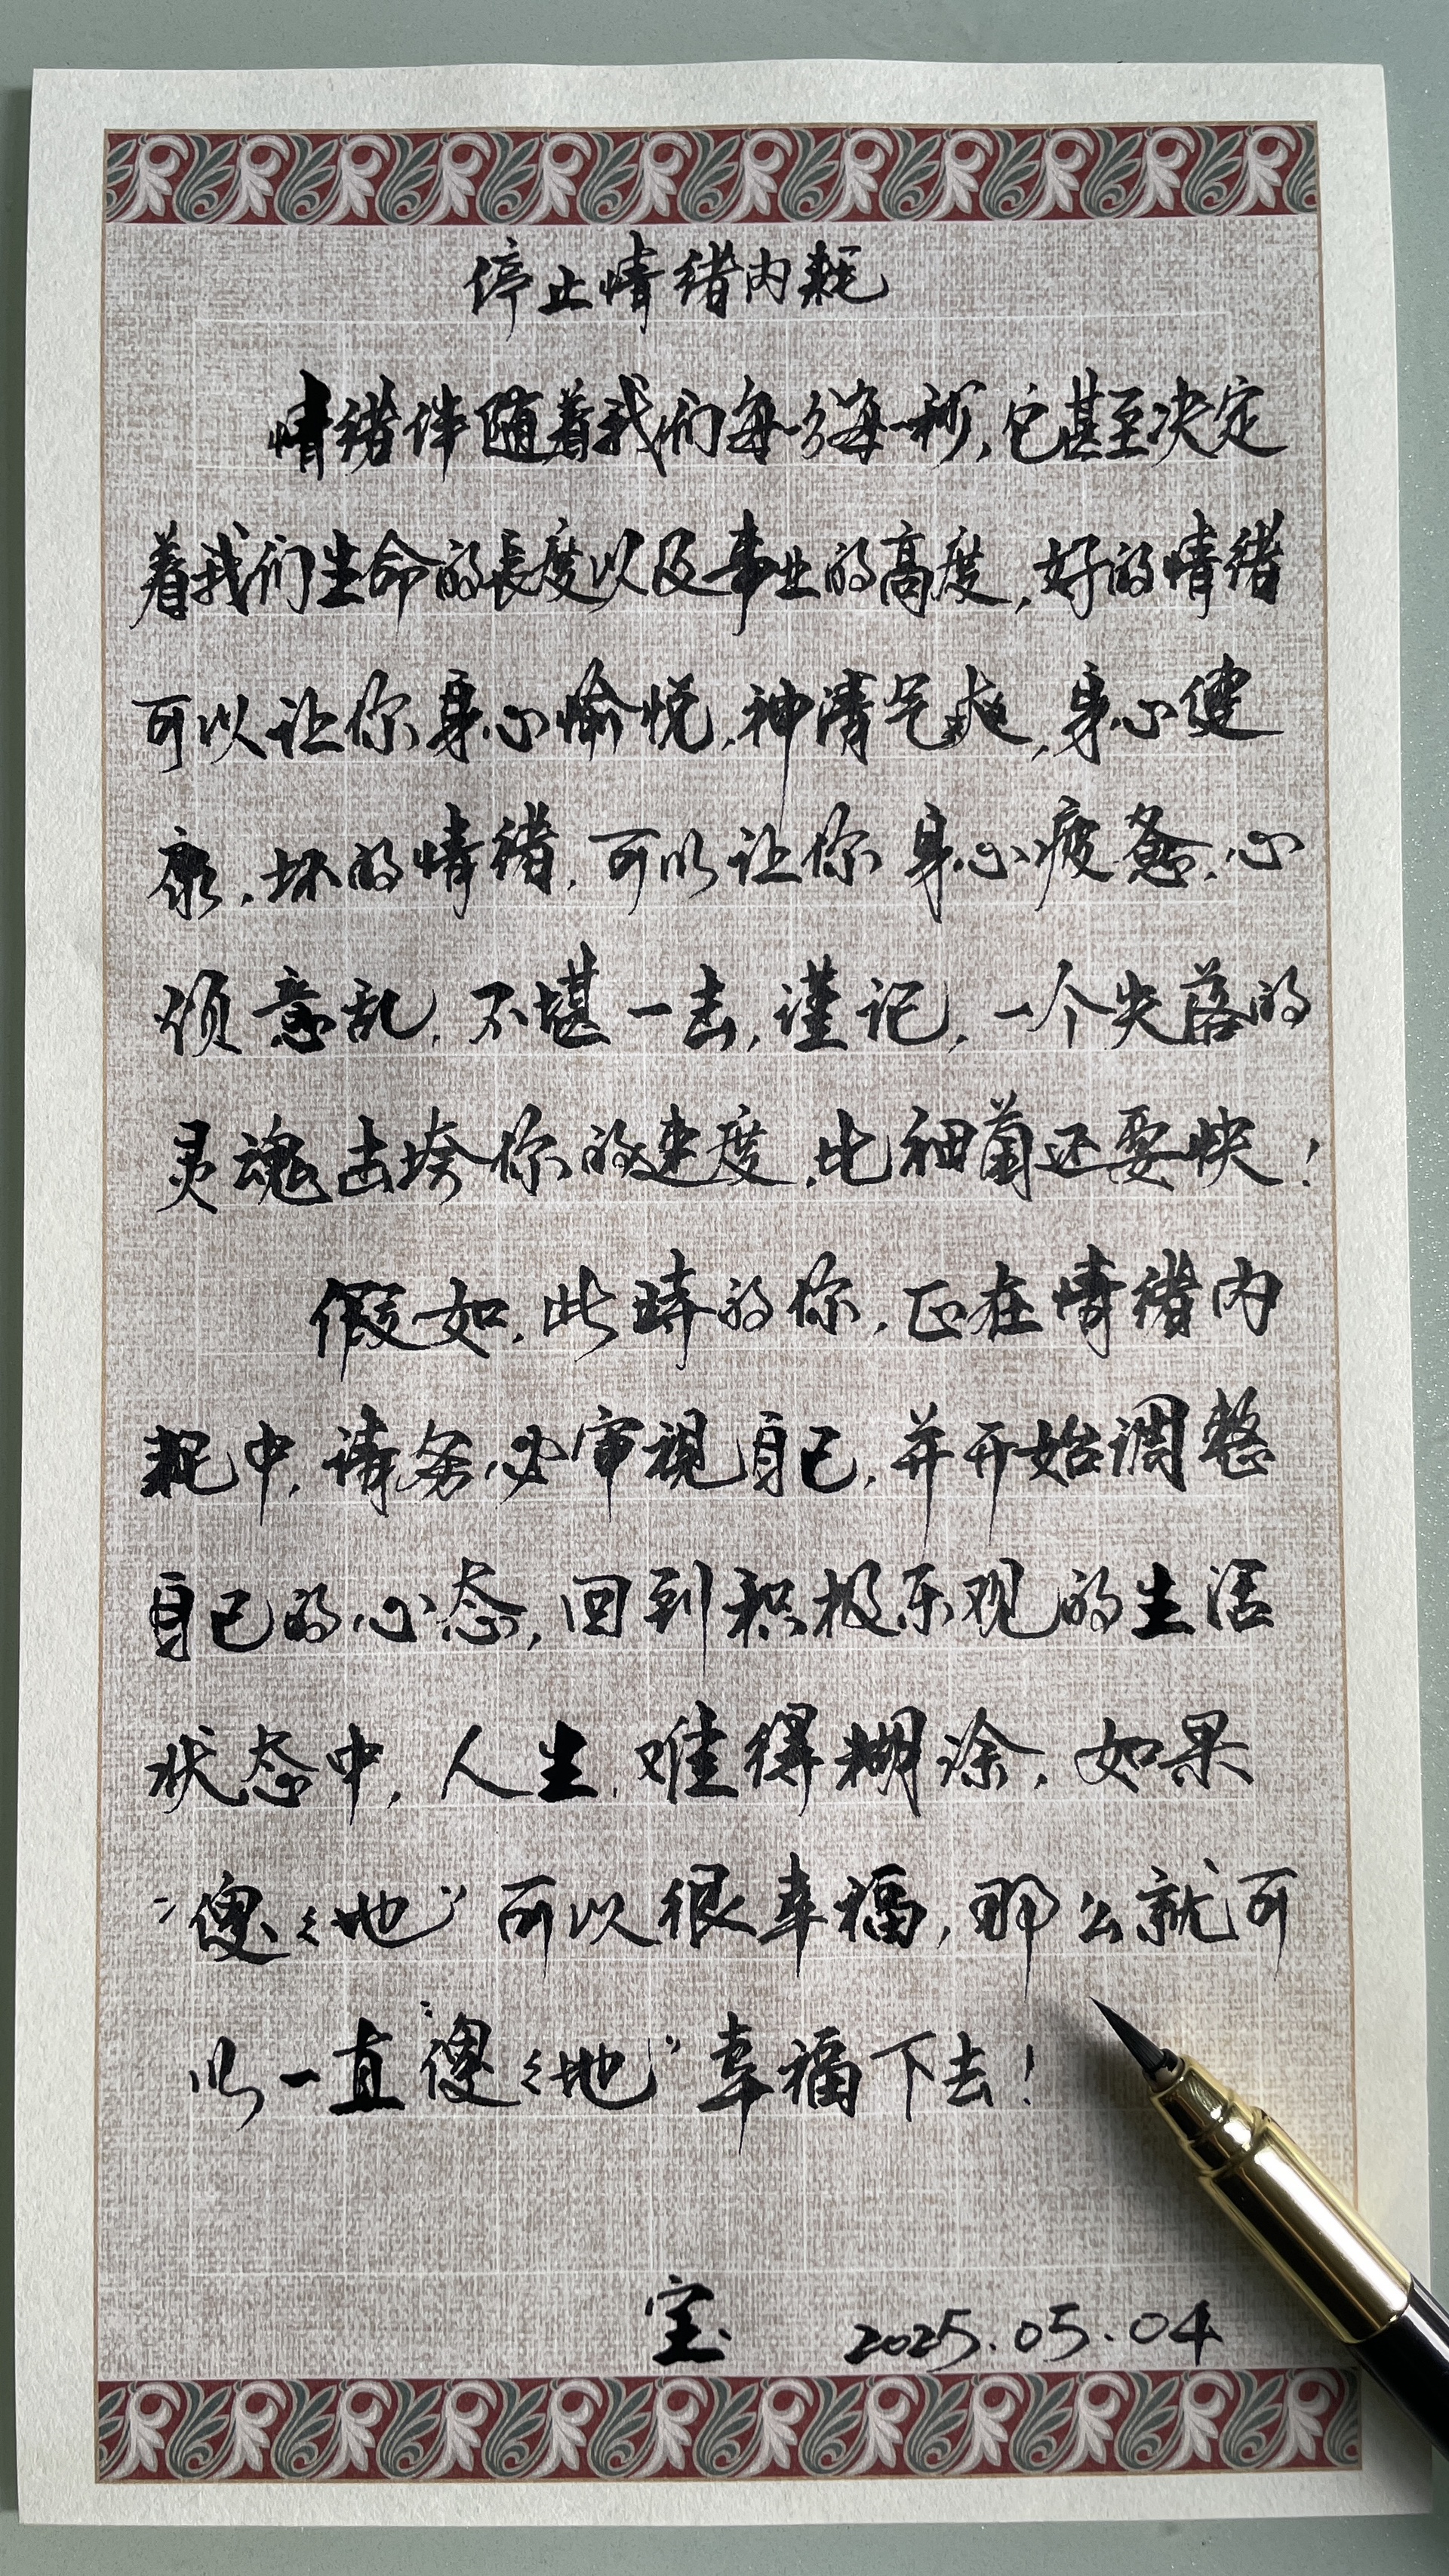 停止情绪内耗
情绪伴随着我们每一分每一秒,它甚至决定
着我们生命的长度以及事业的高度,好的情绪
可以让你身心愉悦,神清气爽,身心健
康,坏的情绪,可以让你身心疲惫,心
烦意乱,不堪一击,谨记,一个失落的
灵魂击垮你的速度,比细菌还要快!
假如,此时的你,正在情绪内
耗中,请务必审视自己,并开始调整
自己的心态,回到积极乐观的生活
状态中,人生,难得糊涂,如果
“傻々地”可以很幸福,那么就可
以一直“傻々地”幸福下去!
宝 2025.05.04